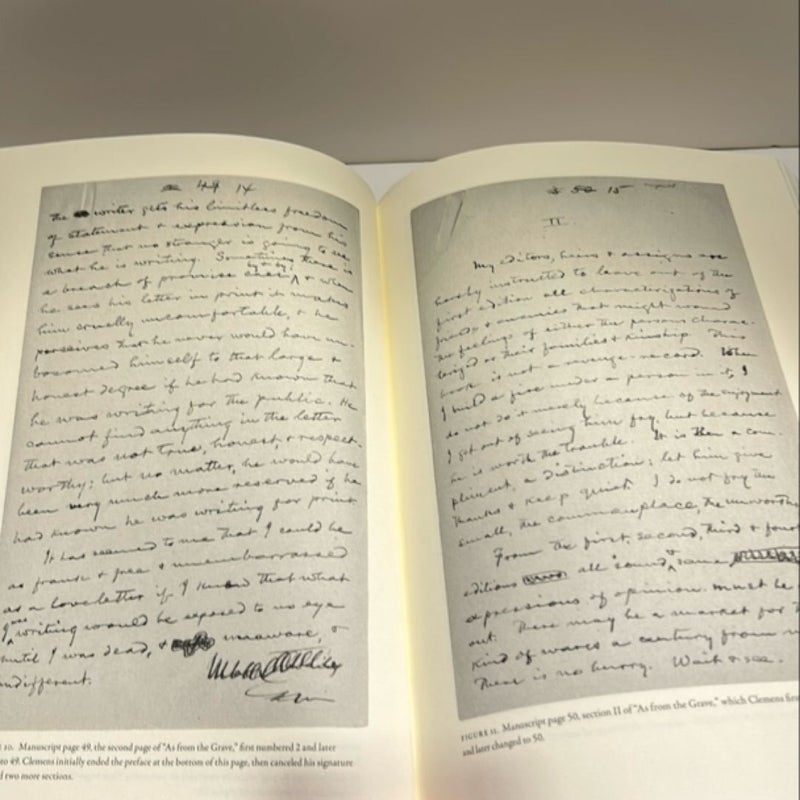 49 14
the writer gets his limitless freedom
of statement & expression from his
sense that no stranger is going to see
what he is writing. Sometimes there is
a breach of promise case & when
by & by
he sees his letter in print it makes
him cruelly uncomfortable, & he
perceives that he never would have un-
bosomed himself to that large &
honest degree if he had known that
he was writing for the public. He
cannot find anything in the letter
that was not true, honest, & respect-
worthy; but no matter, he would have
been very much more reserved if he
had known he was writing for print
It has seemed to me that I could be
as frank & free & unembarrassed
as a love letter if I knew that what
I was writing would be exposed to no eye
until I was dead, & unaware, &
indifferent.
10. Manuscript page 49, the second page of "As from the Grave," first numbered 2 and later
to 49. Clemens initially ended the preface at the bottom of this page, then canceled his signature
two more sections.
50 15
II
My editors, heirs & assigns are
hereby instructed to leave out of the
first edition all characterizations of
friends & enemies that might wound
the feelings of either the persons charac-
terized or their families & kinship. This
book is not a revenge-record. When
I build a fire under a person in it, I
do not do it merely because of the enjoyment
I get out of seeing him fry, but because
he is worth the trouble. It is then a com-
pliment, a distinction; let him give
thanks & keep quiet. I do not fry the
small, the commonplace, the unworthy
From the first, second, third & fourth
editions all sound & sane
expressions of opinion must be
out. There may be a market for
kind of wares a century from
There is no hurry. Wait & see.
FIGURE 11. Manuscript page 50, section II of "As from the Grave," which Clemens first
and later changed to 50.